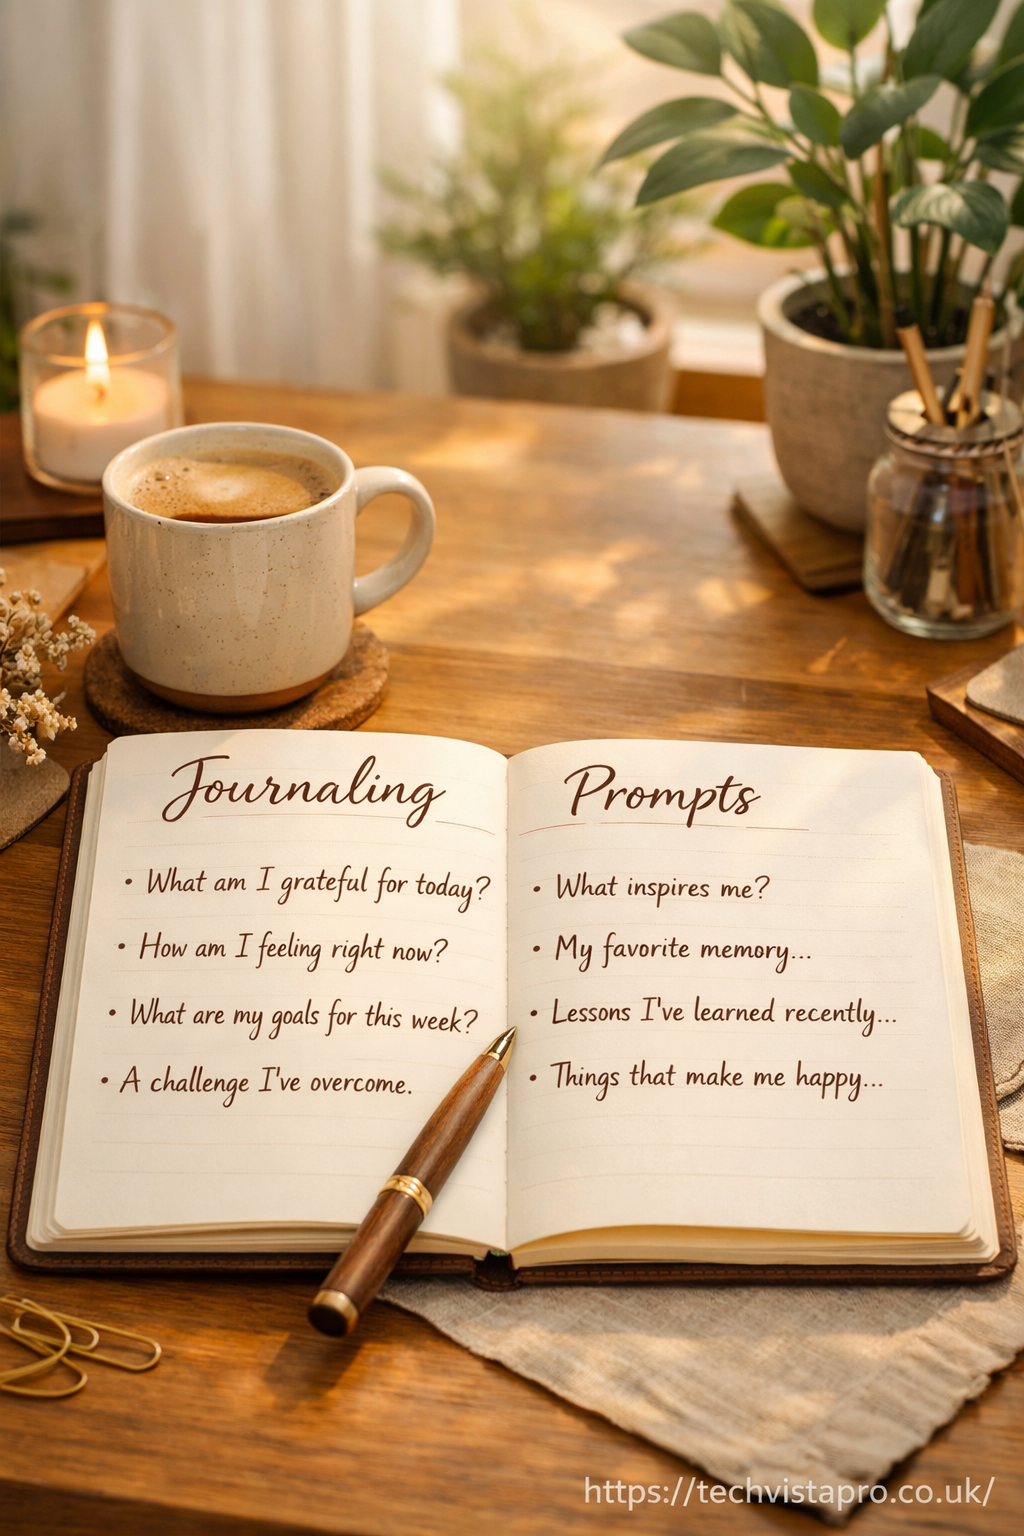 Journaling Prompts
• What am I grateful for today?
• How am I feeling right now?
• What are my goals for this week?
• A challenge I've overcome.
• What inspires me?
• My favorite memory...
• Lessons I've learned recently...
• Things that make me happy...
https://techvistapro.co.uk/